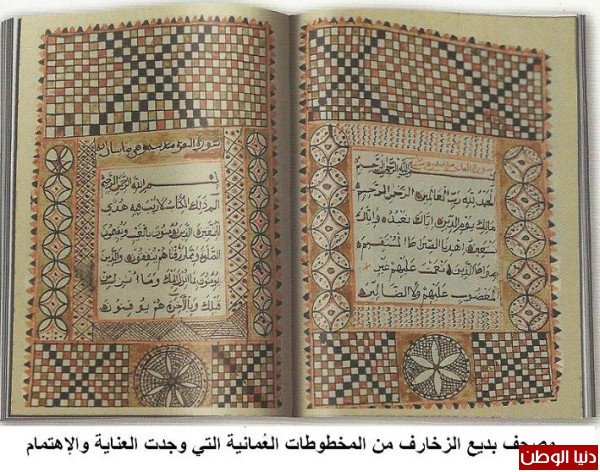 سورة الفاتحة
بسم الله الرحمن الرحيم
الحمد لله رب العالمين الرحمن الرحيم
مالك يوم الدين إياك نعبد وإياك
نستعين إهدنا الصراط المستقيم
صراط الذين أنعمت عليهم غير
المغضوب عليهم ولا الضالين
سورة البقرة مدنية وهي مايتان
بسم الله الرحمن الرحيم
الم ذلك الكتاب لا ريب فيه هدى
للمتقين الذين يومنون بالغيب ويقيمون
الصلوة ومما رزقناهم ينفقون والذين
يومنون بما انزل اليك وما انزل من
قبلك وبالاخرة هم يوقنون
مصحف بديع الزخارف من المخطوطات العُمانية التي وجدت العناية والإهتمام
دنيا الوطن